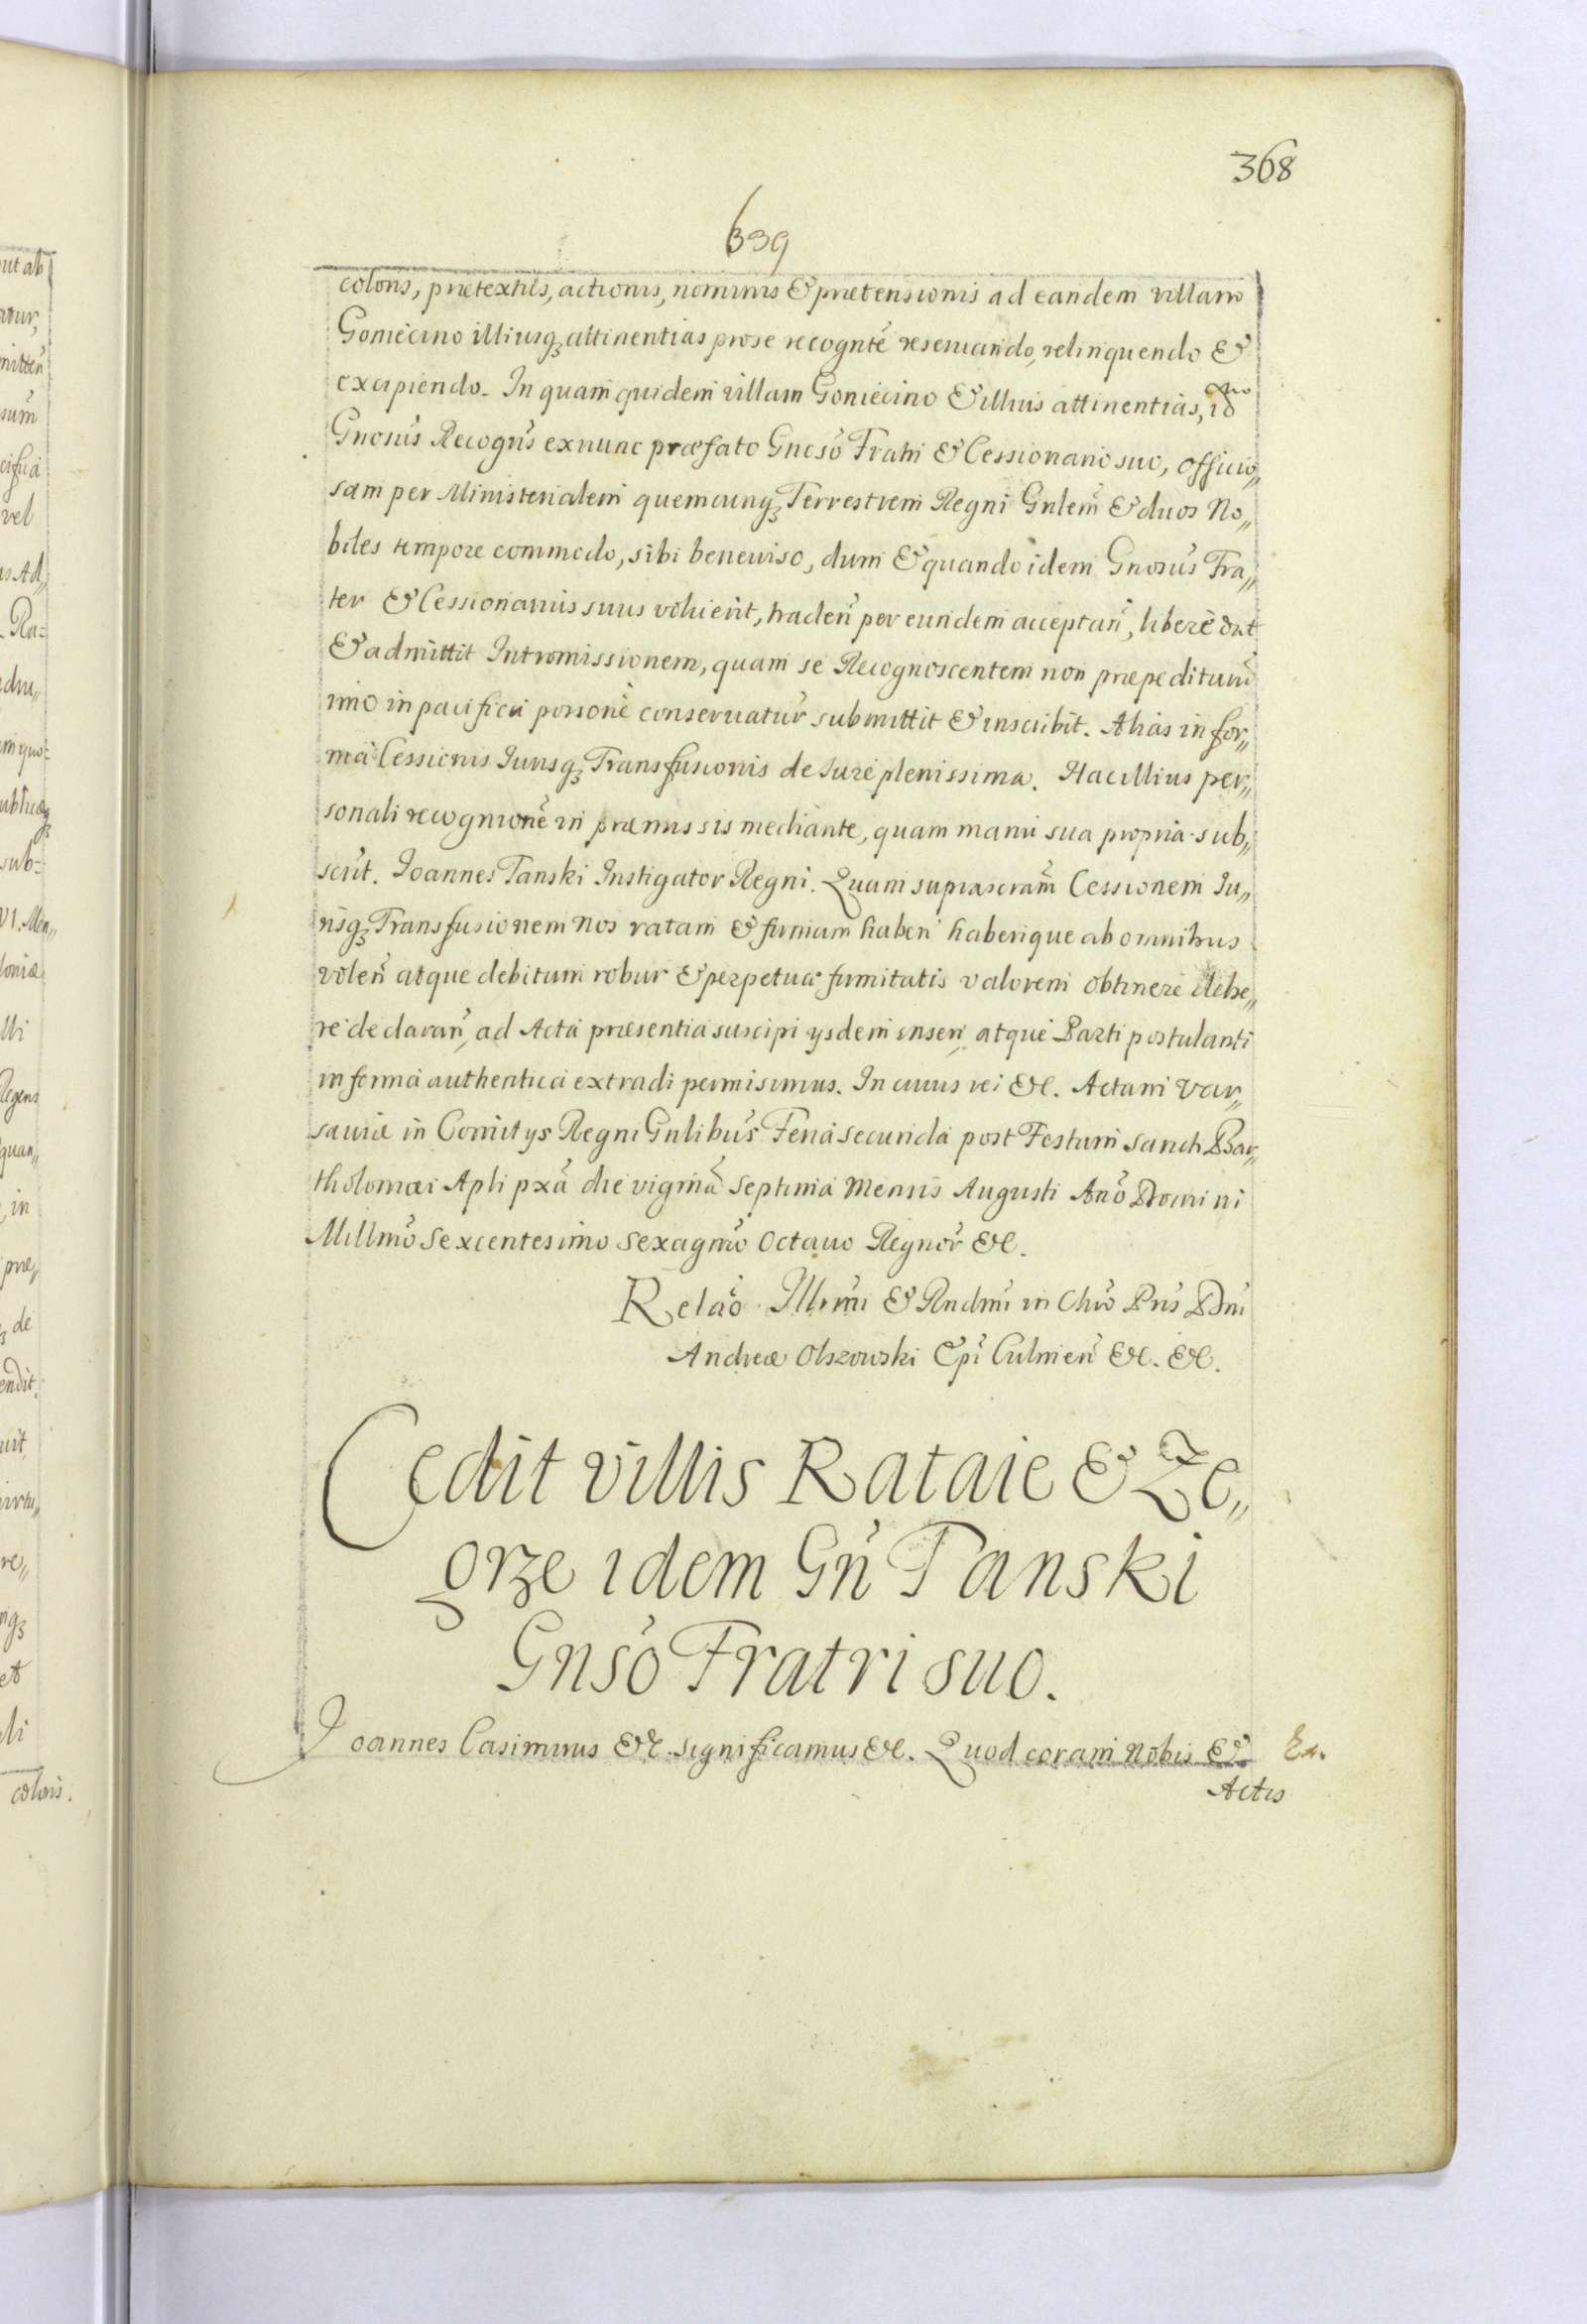 368
639
coloris, prætextus, actionis, nominis & prætensionis ad eandem villam
Goniecino illiusq₃ attinentias pro se recognte reseruando, relinquendo &
excipiendo. In quam quidem villam Goniecino & illius attinentias,
Gnosus Recogns ex nunc præfato Gnoso Fratri & Cessionario suo, officio„
sam per Ministerialem quemcunq₃ Terrestrem Regni Gnlem & duos No„
biles tempore commodo, sibi beneuiso, dum & quando idem Gnosus Fra„
ter & Cessionarius suus voluerit, traden per eundem acceptan, libere dat
& admittit Intromissionem, quam se Recognoscentem non præpediturũ
imo in pacifica possone conseruatur submittit & inscribit. Alias in for„
ma Cessionis Jurisq₃ Transfusionis de Jure plenissima. Hac illius per„
sonali recognione in præmissis mediante, quam manu sua propria sub„
scrit. Joannes Tanski Instigator Regni. Quam suprascram Cessionem Ju„
risq₃ Transfusionem Nos ratam & firmam haberi haberique ab omnibus
volen atque debitum robur & perpetuæ firmitatis valorem obtinere debe„
re declaran, ad Acta præsentia suscipi ysdem inseri atque Parti postulanti
in forma authentica extradi permisimus. In cuius rei &c. Actum Var„
sauiæ in Comitys Regni Gnlibus Feria secunda post Festum Sancti Bar„
tholomæi Apli pxa die vigma septima Mensis Augusti Ano Domini
Millmo Sexcentesimo Sexagmo Octauo Regnor &c.
Relao Illrmi & Rndmi in Chro Pris Dni
Andreæ Olszowski Epi Culmen &c. &c.
Cedit villis Rataie & Ze„
grze idem Gn Tanski
Gnso Fratri suo.
Joannes Casimirus &c. significamus &c. Quod coram Nobis & Ex.
Actis